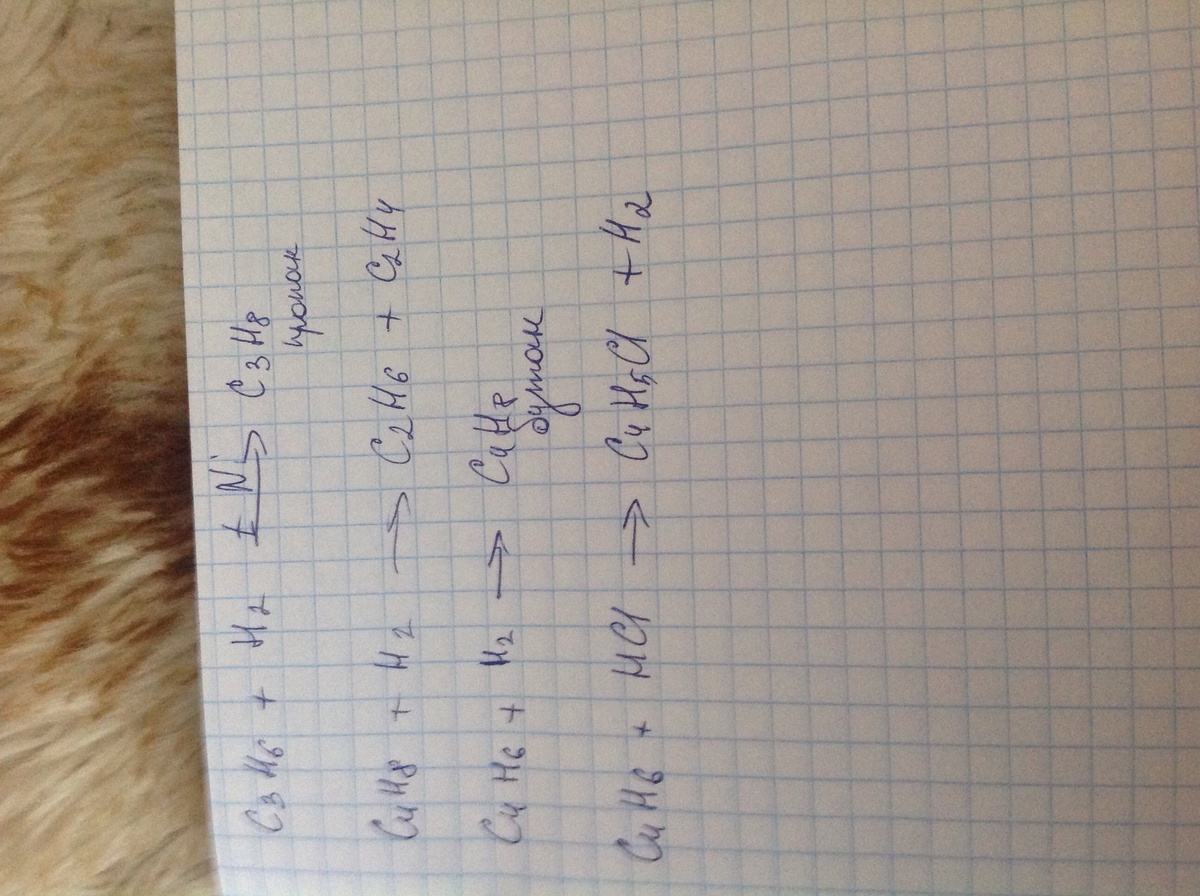 C3H6 + H2 t Ni → C3H8
пропан
C4H8 + H2 → C2H6 + C2H4
C4H6 + H2 → C4H8
бутан
C4H6 + HCl → C4H5Cl + H2